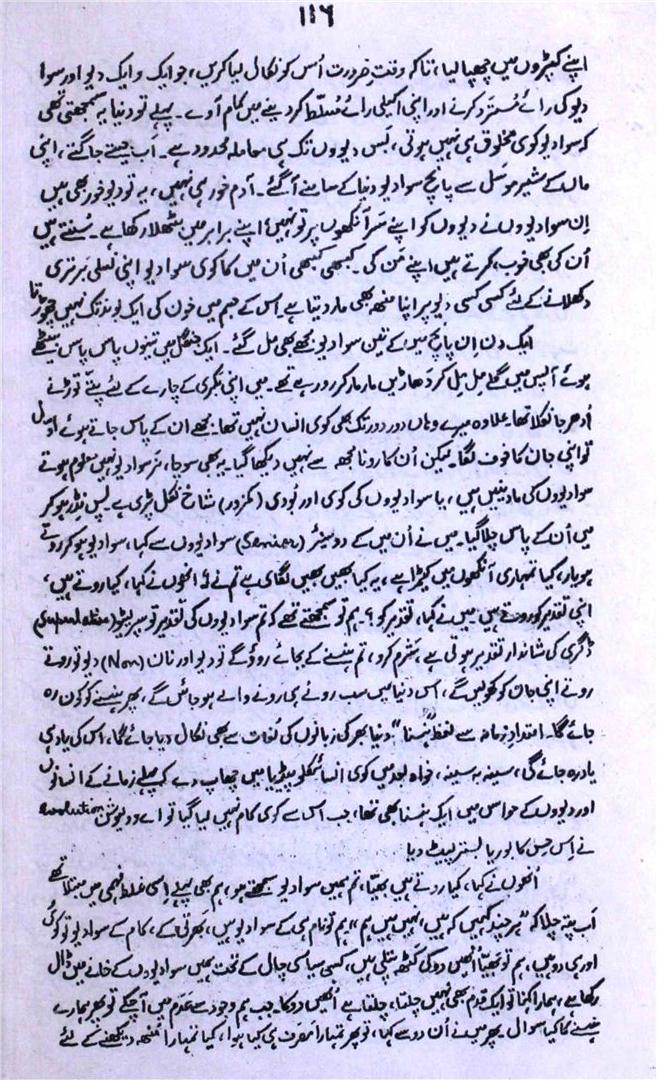 ۱۱۶
اپنے کپڑوں میں چھپا لیا، تاکہ وقتِ ضرورت اُس کو نکال لیا کریں، جو ایک و ایک دیو اور سوا
دیو کی رائے مُسترَد کرنے اور اپنی اکیلی رائے مُسلّط کر دینے میں کام آوے۔ پہلے تو دنیا یہ سمجھتی تھی
کہ سوا دیو کوی مخلوق ہی نہیں ہوتی، بَس دیووں تک ہی معاملہ محدود ہے۔ اَب جیتے جاگتے، اپنی
ماں کے شیرِ موسَل سے پانچ سوا دیو دنیا کے سامنے آ گئے۔ آدم خور ہی نہیں، یہ تو دیو خور بھی ہیں
اِن سوا دیووں نے دیووں کو اپنے سَر آنکھوں پر تو نہیں، اپنے برابر میں بٹھلا رکھا ہے۔ سُنتے ہیں
اُن کی بھی خوب، کرتے ہیں اپنے مَن کی۔ کبھی کبھی اُن میں کا کوی سوا دیو اپنی نسلی برتری
دکھلانے کے لئے کسی کسی دیو پر اپنا منھ بھی مار دیتا ہے اس کے جسم میں خون کی ایک بوند تک نہیں چھوڑتا
ایک دن اِن پانچ میں کے تین سوا دیو مجھے بھی مل گئے۔ ایک جنگل میں تینوں پاس پاس بیٹھے
ہوئے آپس میں گلے مِل مِل کر دھاڑیں مار مار کر رو رہے تھے۔ میں اپنی بکری کے چارے کے لئے پتّے توڑنے
اُدھر جا نکلا تھا۔ علاوہ میرے وہاں دور دور تک بھی کوی انسان نہیں تھا۔ مجھے ان کے پاس جاتے ہوئے اوّل
تو اپنی جان کا خوف لگا۔ لیکن اُن کا رونا مجھ سے نہیں دیکھا گیا۔ یہ بھی سوچا، نَر سوا دیو نہیں معلوم ہوتے
سوا دیووں کی مادینیں ہیں، یا سوا دیووں کی کوی اور بُودی (کمزور) شاخ نکل پڑی ہے۔ پس نِڈر ہو کر
میں اُن کے پاس چلا گیا۔ میں نے اُن میں کے دو سینئر (Senior) سوا دیووں سے کہا، سوا دیو ہو کر روتے
ہو یار، کیا تمہاری آنکھوں میں کیڑا ہے، یہ کیا بھیں بھیں لگائی ہے تم نے؟ انھوں نے کہا، کیا روتے ہیں،
اپنی تقدیر کو روتے ہیں۔ میں نے کہا، تقدیر کو؟۔ ہم تو سمجھتے تھے کہ تم سوا دیووں کی تقدیر تو سپر لیٹو (Superlative)
ڈگری کی شاندار تقدیر ہوتی ہے، شرم کرو، تم ہنسنے کے بجائے روؤ گے تو دیو اور نان (Non) دیو تو روتے
روتے اپنی جان کو کھو لیں گے، اس دنیا میں سب رونے ہی رونے والے ہو جائیں گے، پھر ہنسنے کو کون رہ
جائے گا۔ امتدادِ زمانہ سے لفظ "ہنسنا" دنیا بھر کی زبانوں کی لُغات سے بھی نکال دیا جائے گا، اس کی یاد ہی
یاد رہ جائے گی، سینہ بہ سینہ، خواہ بعد میں کوی انسائکلو پیڈیا میں چھاپ دے کہ پہلے زمانے کے انسانوں
اور دیووں کے حواس میں ایک ہنسنا بھی تھا، جب اس سے کوی کام نہیں لیا گیا تو اے وولیوشن evolution
نے اِس حِس کا بوریا بِستر لپیٹ دیا
اُنھوں نے کہا، کیا روتے ہیں بھیّا، تم ہمیں سوا دیو سمجھتے ہو، ہم بھی پہلے اِسی غلط فہمی میں مبتلا تھے
اَب پتہ چلا کہ "ہر چند کہیں کہ ہیں، نہیں ہیں ہم" ہم تو نام ہی کے سوا دیو ہیں، بھرتی کے، کام کے سوا دیو تو کوئی
اور ہی دو ہیں، ہم تو بھیّا اُنھیں دو کی کٹھ پتلی ہیں، کسی سیاسی چال کے تحت ہمیں سوا دیووں کے خانے میں ڈال
رکھا ہے، ہمارا کہنا تو ایک قدم بھی نہیں چلتا، چلتا ہے انھیں دو کا۔ جب ہم وجود سے عَدم میں آ چکے تو پھر ہمارے
ہنسنے کا کیا سوال۔ پھر میں نے اُن دو سے کہا، تو پھر تمہارا مَصرَف ہی کیا ہوا، کیا تمہارا منھ دیکھنے کے لئے